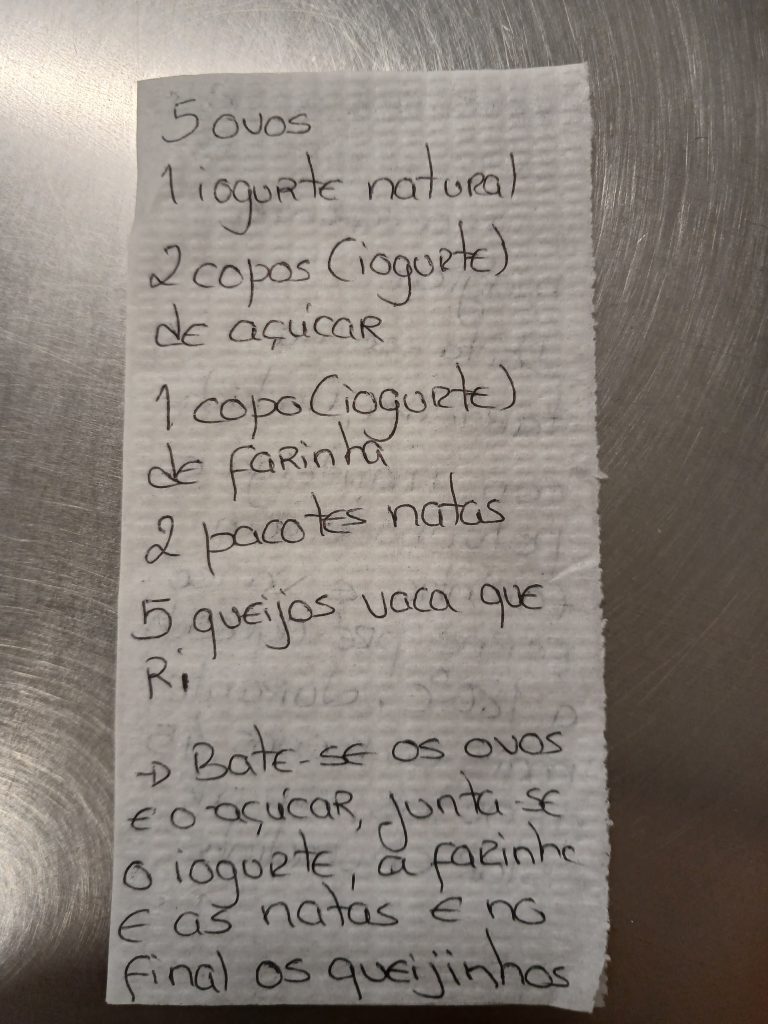 5 ovos
1 iogurte natural
2 copos (iogurte)
de açúcar
1 copo (iogurte)
de farinha
2 pacotes natas
5 queijos vaca que
Ri
→ Bate-se os ovos
e o açúcar, junta-se
o iogurte, a farinha
e as natas e no
final os queijinhos